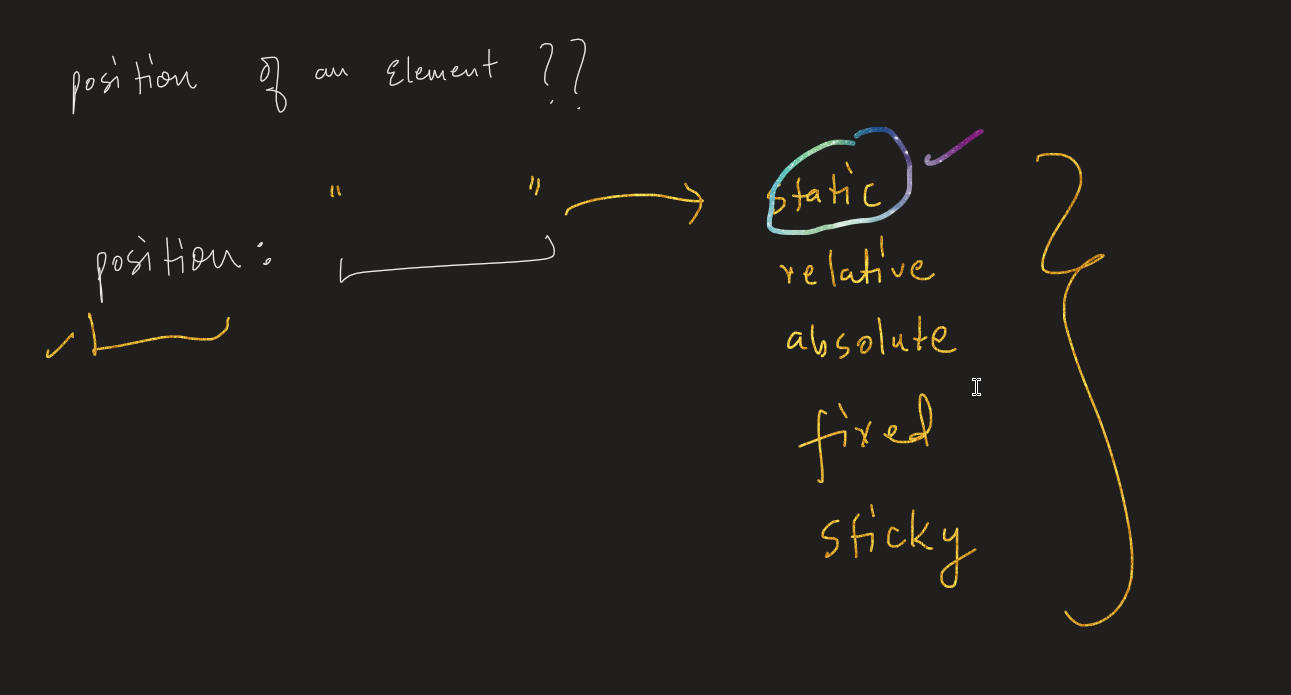 position of an Element ??
" "
position :
static
relative
absolute
fixed
sticky